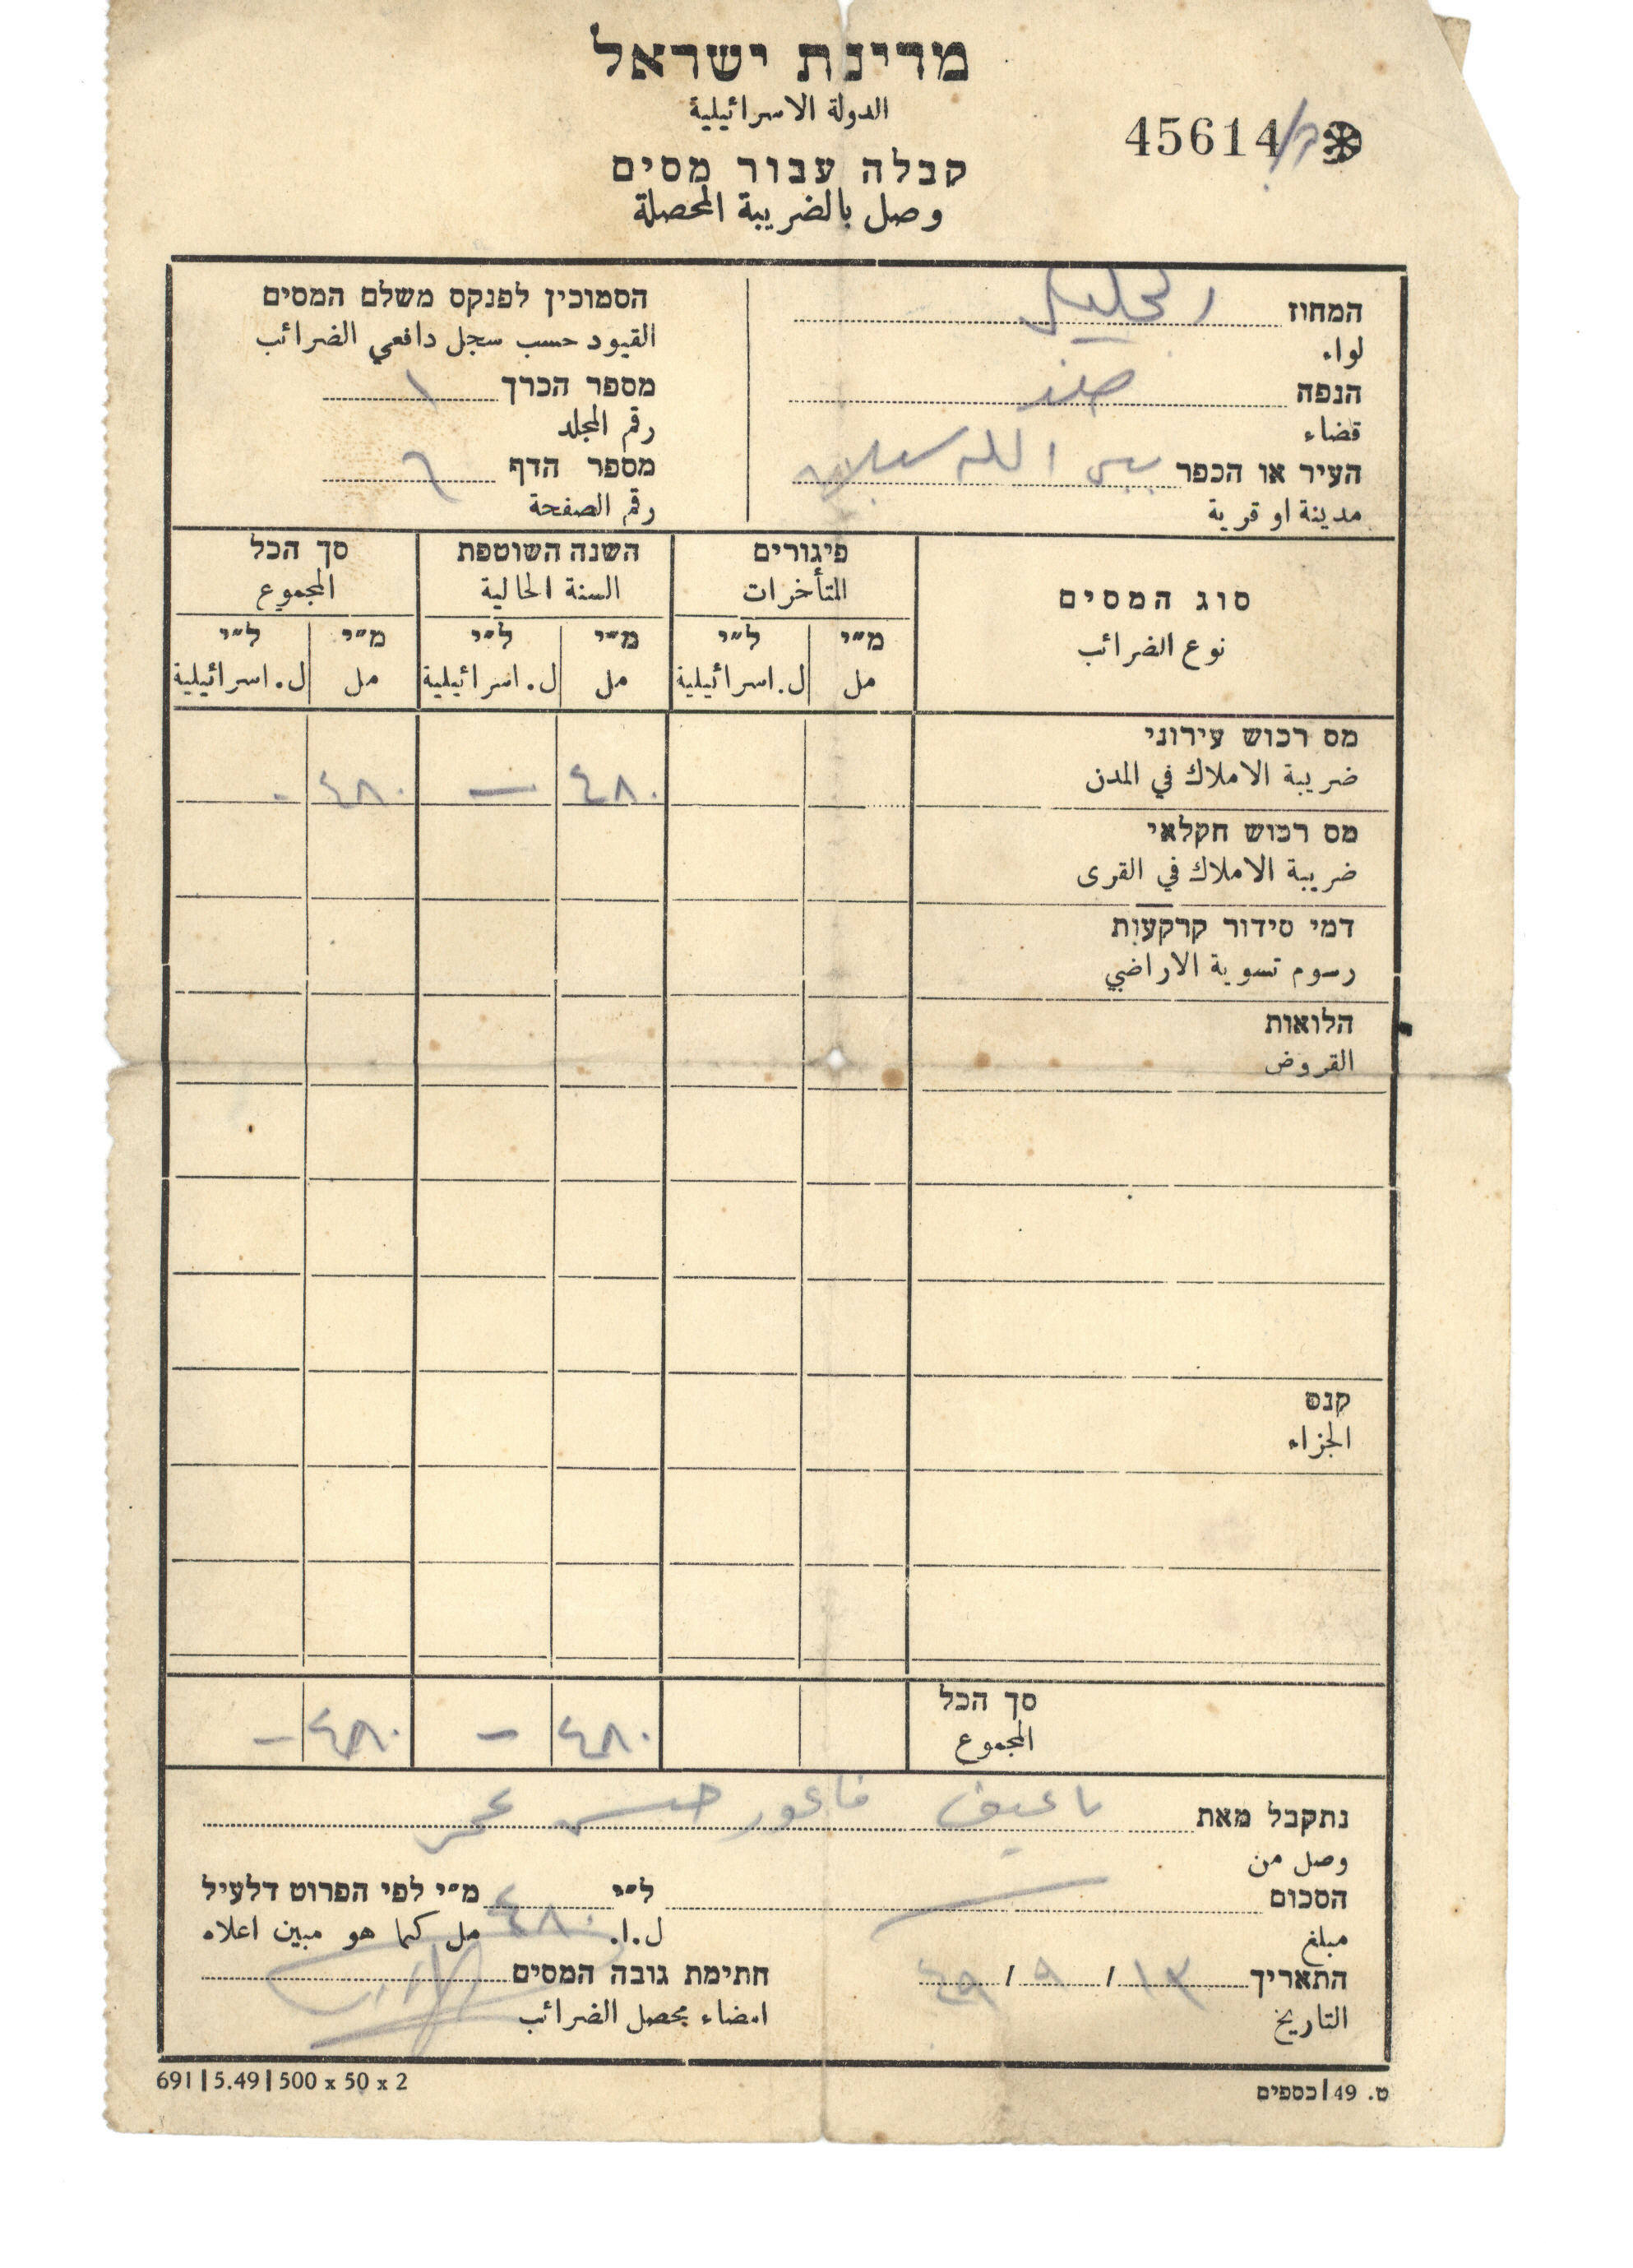 מדינת ישראל
الدولة الاسرائيلية
45614
קבלה עבור מסים
وصل بالضريبة المحصلة
המחוז الجليل
لواء
הנפה صفد
قضاء
העיר או הכפר
مدينة او قرية
הסמוכין לפנקס משלם המסים
القيود حسب سجل دافعي الضرائب
מספר הכרך ١
رقم المجلد
מספר הדף ٦
رقم الصفحة
סוג המסים
نوع الضرائب
פיגורים
المتأخرات
השנה השוטפת
السنة الحالية
סך הכל
المجموع
מ״י ל״י מ״י ל״י מ״י ל״י
مل ل. اسرائيلية مل ل. اسرائيلية مل ل. اسرائيلية
מס רכוש עירוני
ضريبة الاملاك في المدن ٤٨٠ — ٤٨٠ -
מס רכוש חקלאי
ضريبة الاملاك في القرى
דמי סידור קרקעות
رسوم تسوية الاراضي
הלואות
القروض
קנס
الجزاء
סך הכל
المجموع ٤٨٠ — ٤٨٠ —
נתקבל מאת فاعور حسن
وصل من
הסכום ל״י ٤٨٠ מ״י לפי הפרוט דלעיל
مبلغ ل.ا. مل كما هو مبين اعلاه
התאריך ١٣ / ٩ / ٤٩ חתימת גובה המסים
التاريخ امضاء محصل الضرائب
ט. 49|כספים
691|5.49|500 x 50 x 2